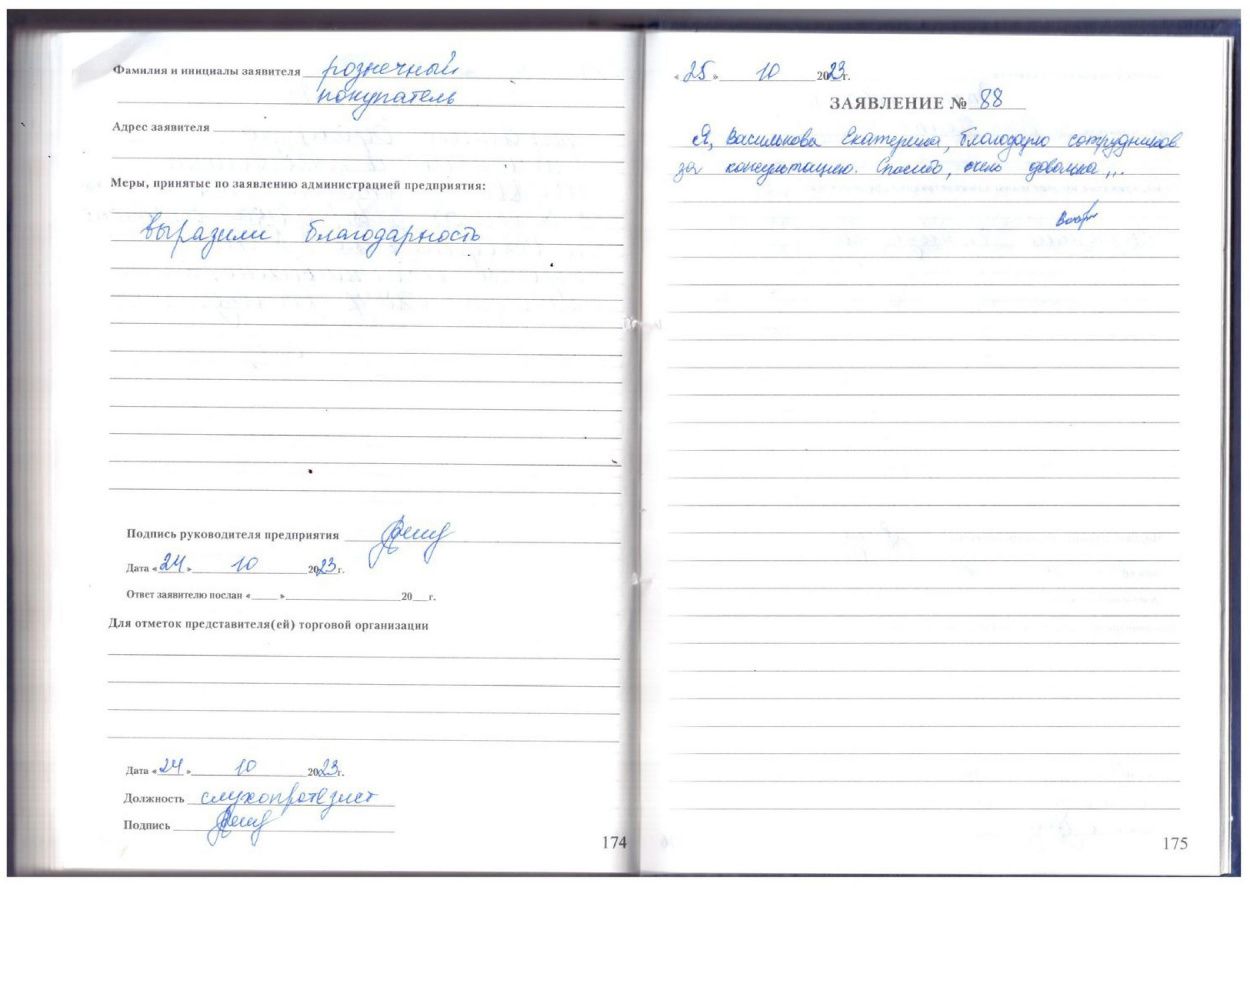 Фамилия и инициалы заявителя розничный
покупатель
Адрес заявителя
Меры, принятые по заявлению администрацией предприятия:
выразили благодарность
Подпись руководителя предприятия
Дата «24» 10 2023 г.
Ответ заявителю послан « » 20 г.
Для отметок представителя(ей) торговой организации
Дата «24» 10 2023 г.
Должность слухопротезист
Подпись
174
«25» 10 2023г.
ЗАЯВЛЕНИЕ № 88
Я, Василькова Екатерина, благодарю сотрудников
за консультацию. Спасибо, очень довольна...
175